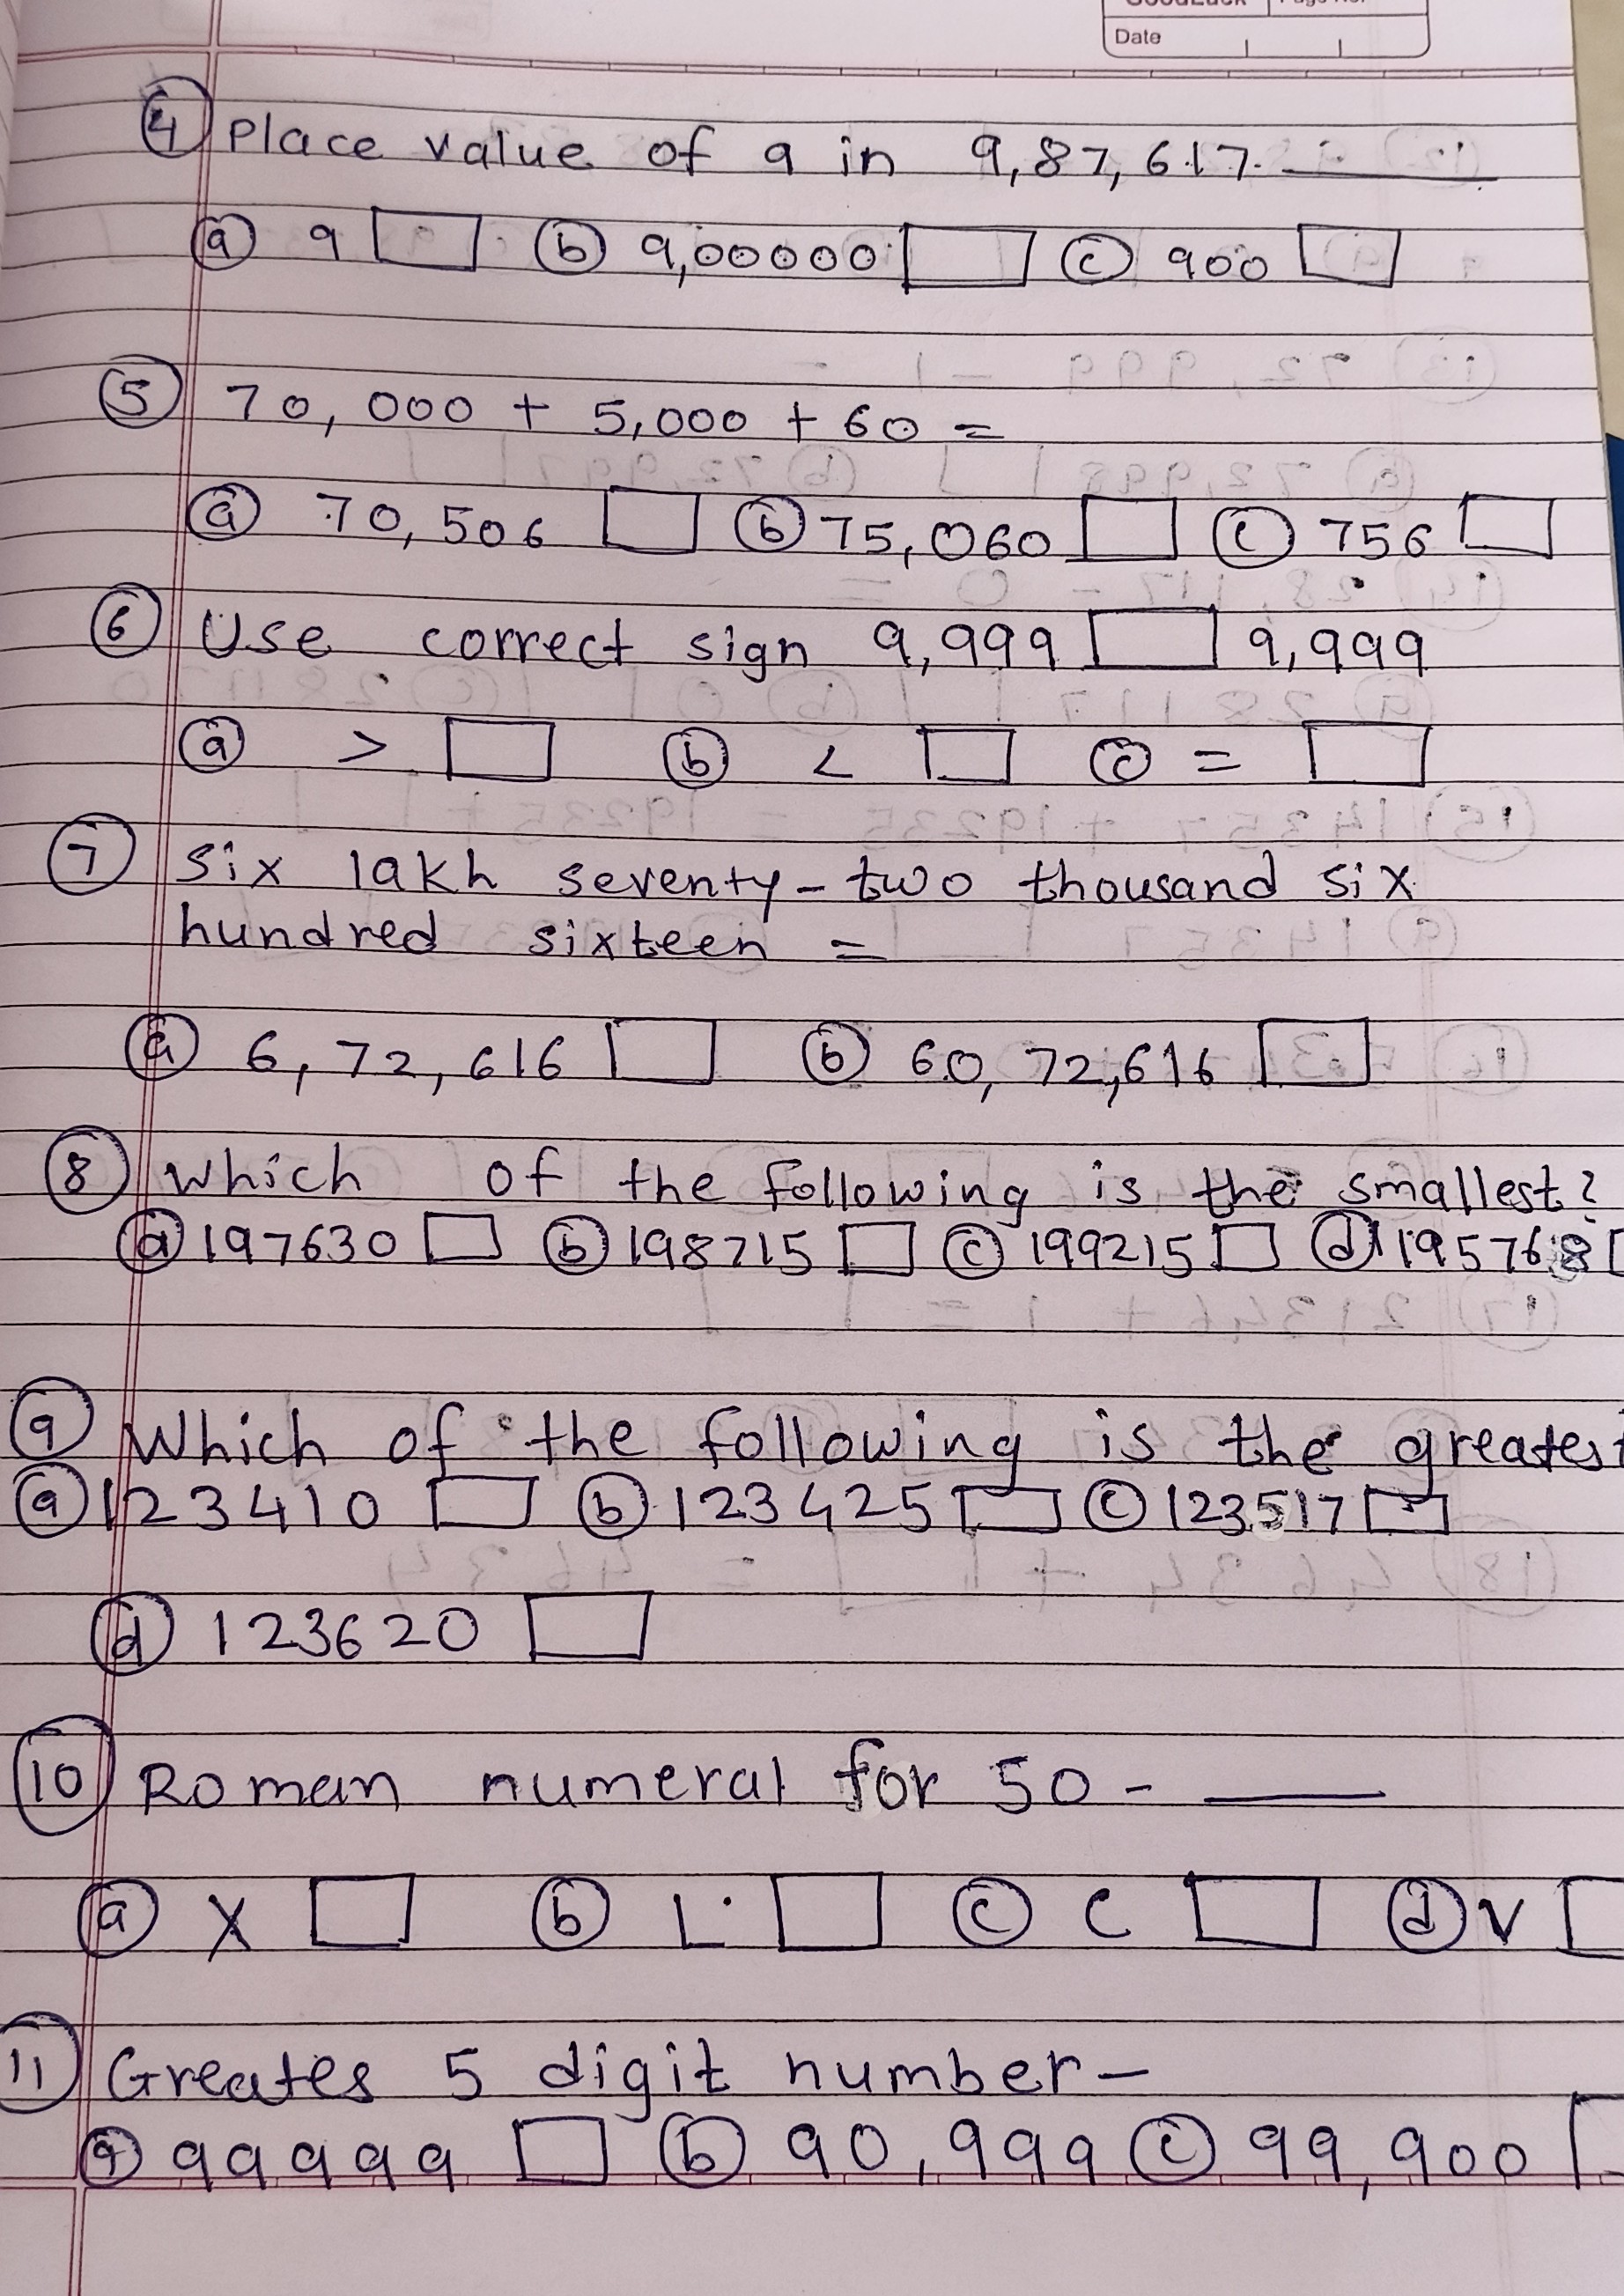 Date
4 Place value of 9 in 9,87,617. ______
a 9 b 9,00000 c 900
5 70,000 + 5,000 + 60 =
a 70,506 b 75,060 c 756
6 Use correct sign 9,999 9,999
a > b < c =
7 six lakh seventy-two thousand six
hundred sixteen =
a 6,72,616 b 60,72,616
8 which of the following is the smallest?
a 197630 b 198715 c 199215 d 195768
9 Which of the following is the greatest
a 123410 b 123425 c 123517
d 123620
10 Roman numeral for 50 - ______
a X b L c C d V
11 Greates 5 digit number-
a 99999 b 90,999 c 99,900